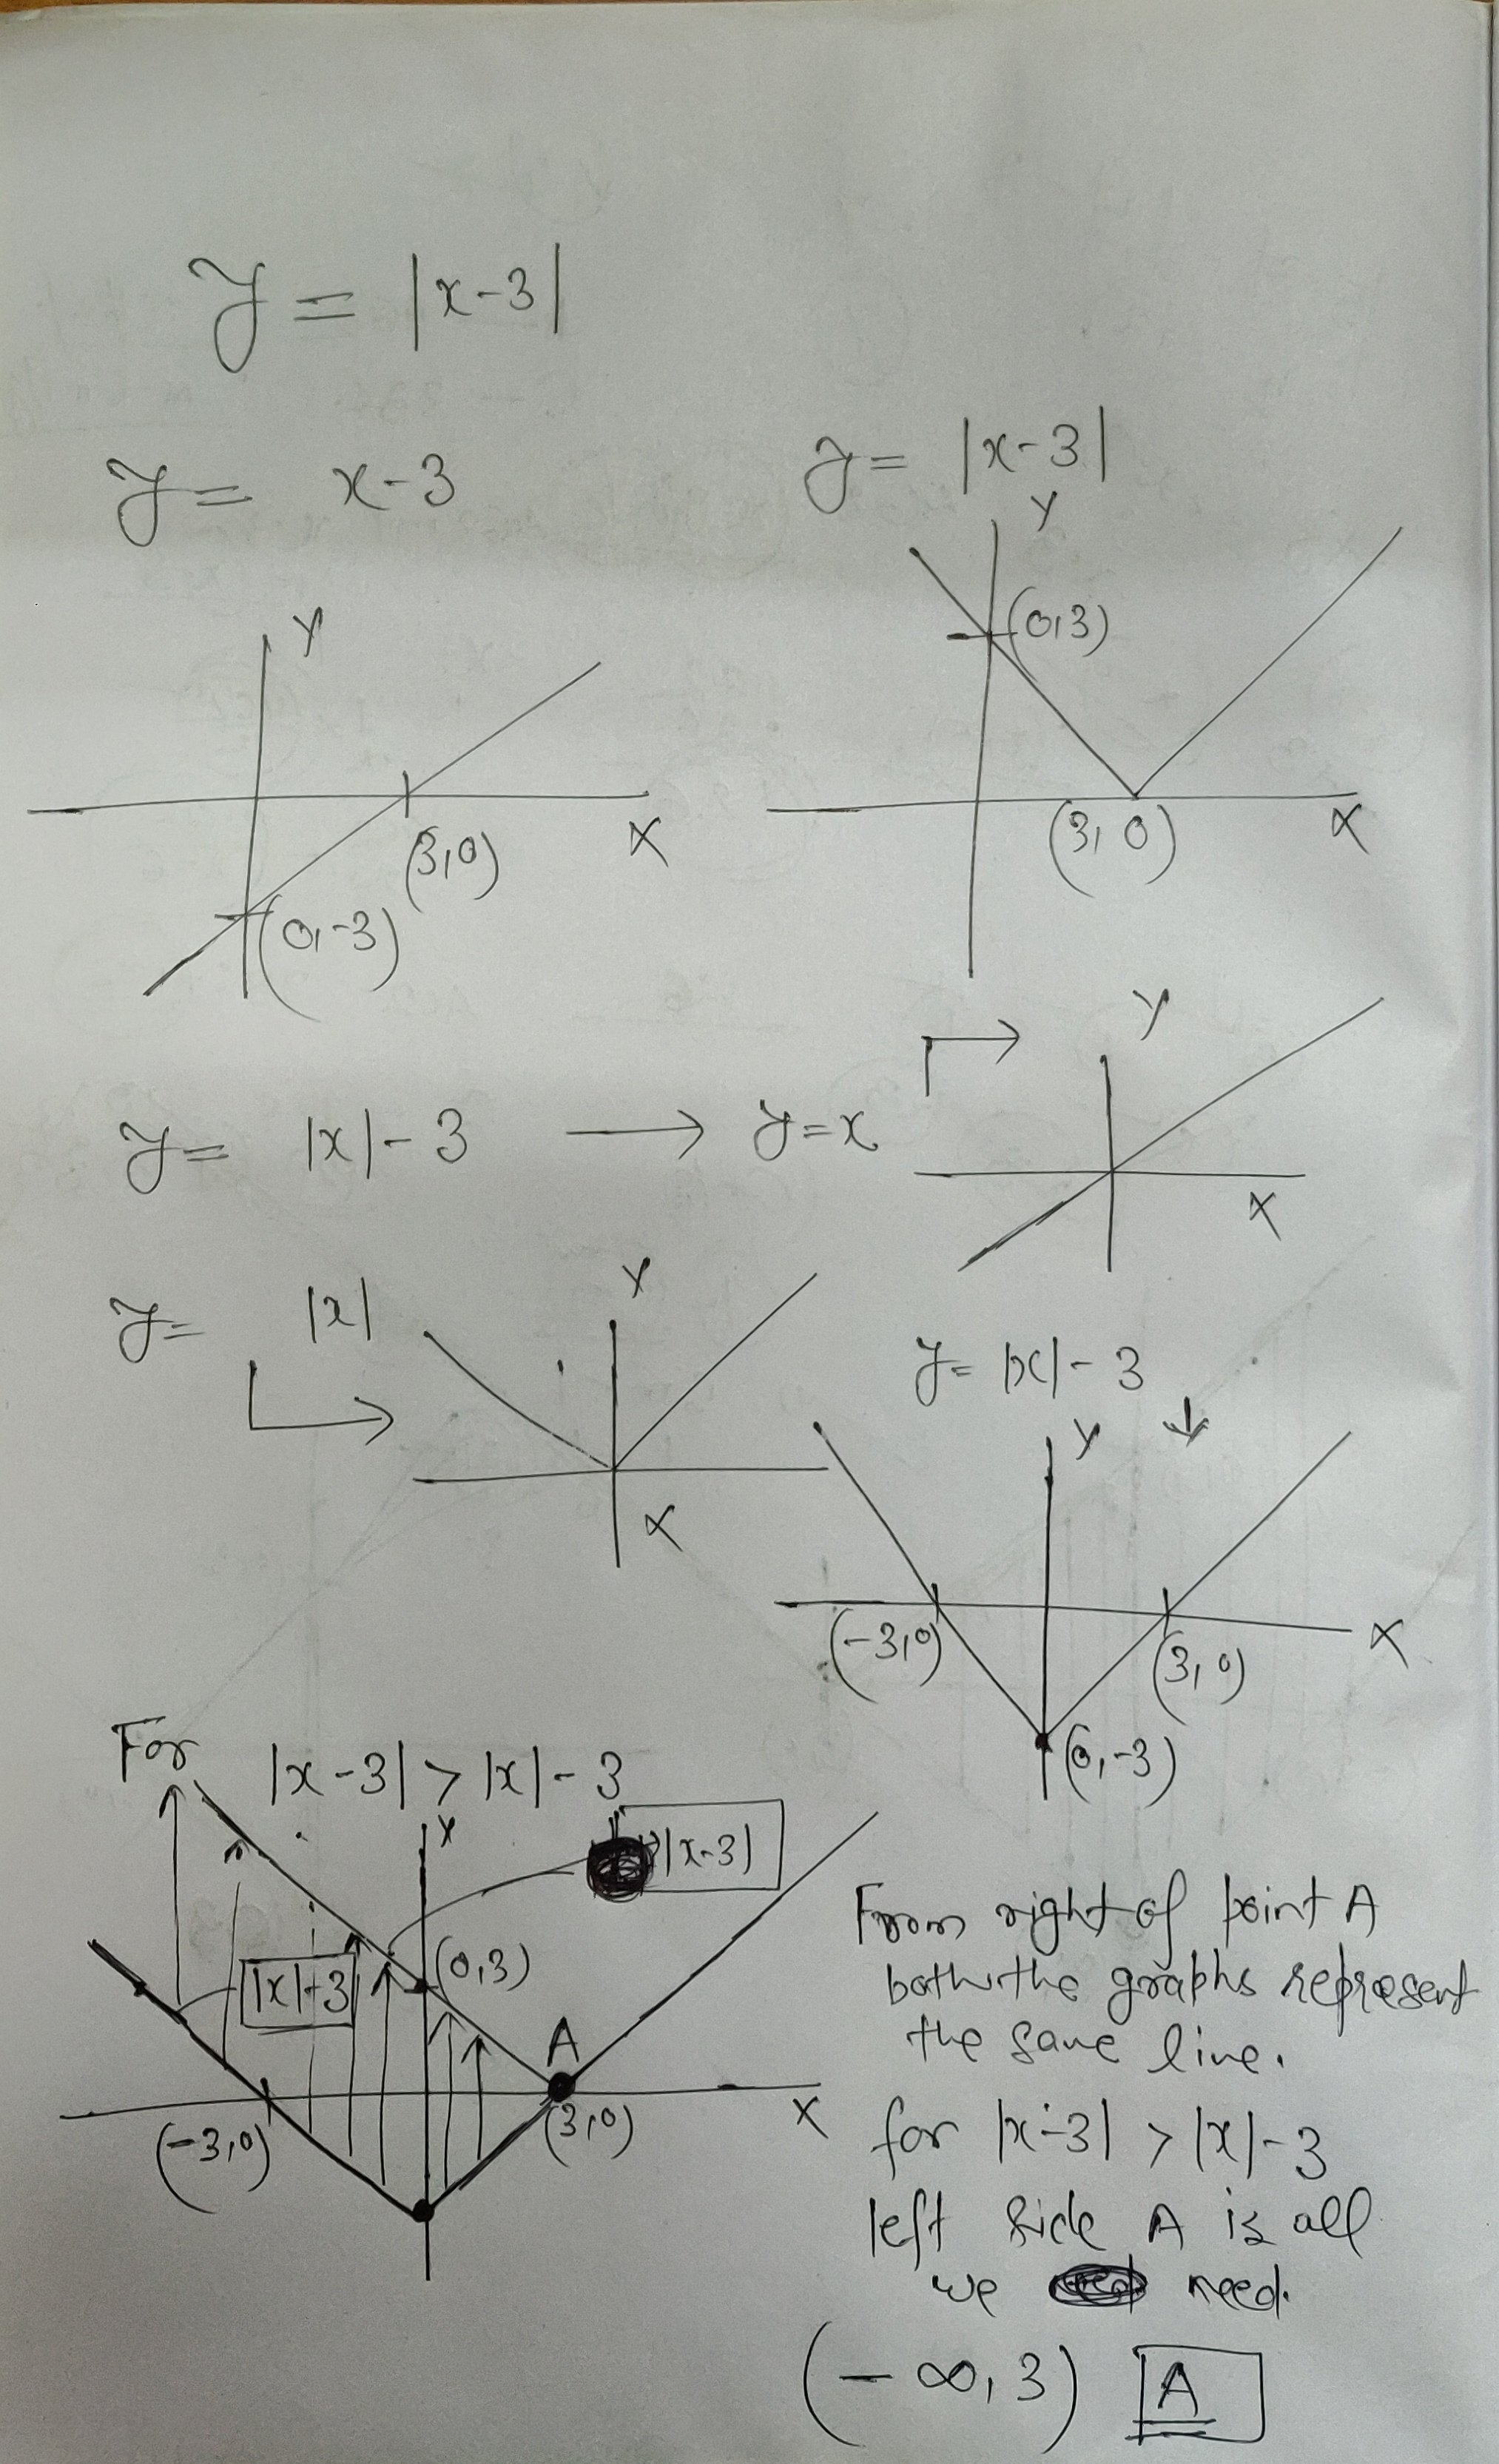 y = |x-3|
y = x-3
y = |x-3|
Y
(0,3)
(3,0)
X
Y
(3,0)
X
(0,-3)
y = |x|-3 → y=x
Y
X
y= |x|
Y
X
y= |x|-3
Y
(-3,0)
(3,0)
X
(0,-3)
For |x-3|>|x|-3
Y
|x-3|
|x|-3
(0,3)
A
(-3,0)
(3,0)
X
From right of point A
both the graphs represent
the same line.
for |x-3| > |x|-3
left side A is all
we need.
(-∞,3) A